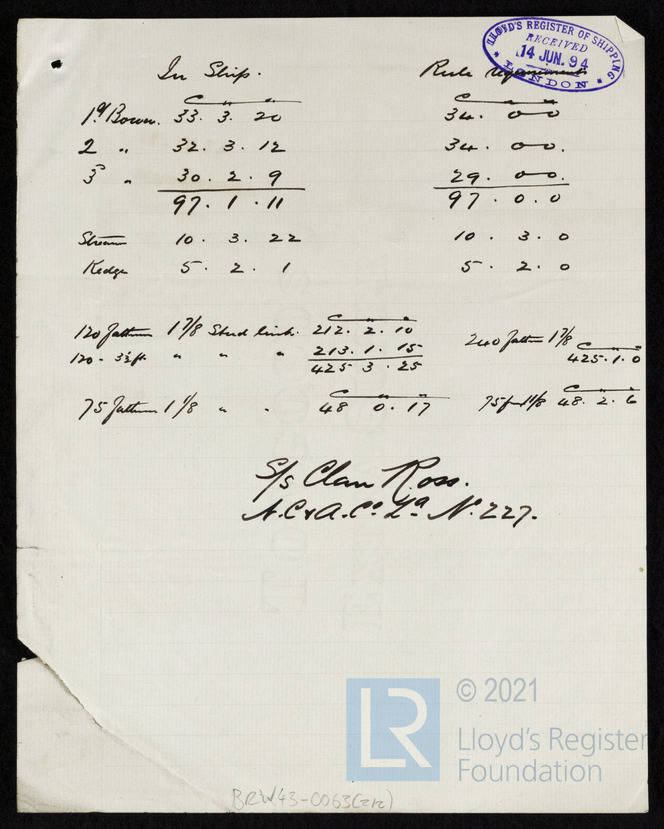 LLOYD'S REGISTER OF SHIPPING
RECEIVED
14 JUN. 94
LONDON
In Ship. Rule requirements
C " " C " "
1st Bower. 33. 3. 20 34. 0 0
2 " 32. 3. 12 34. 0 0.
3 " 30. 2. 9 29. 0 0.
97. 1. 11 97. 0. 0
Stream 10. 3. 22 10. 3. 0
Kedge 5. 2. 1 5. 2. 0
C " " 
120 fathom 1 7/8 Stud link. 212. 2. 10 240 fathom 1 7/8 C " "
120 - 3½ ft. " " " 213. 1. 15 425. 1. 0
425 3. 25
C " " C " "
75 fathom 1 1/8 " " 48 0. 17 75 fm 1 1/8 48. 2. 6
S/s Clan Ross.
N.C & A. Co. Ld No. 227.
LR
© 2021
Lloyd's Register
Foundation
BRW43-0063(212)